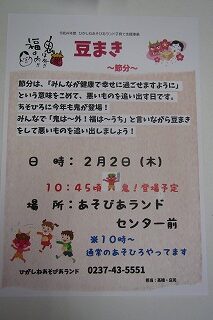 令和4年度 ひがしねあそびあランド子育て支援事業
鬼は外
福は内
豆まき
~節分~
節分は、「みんなが健康で幸せに過ごせますように」
という意味をこめて、悪いものを追い出す日です。
あそびろに今年も鬼が登場!
みんなで「鬼は~外!福は~うち」と言いながら豆まき
をして悪いものを追い出しましょう!
日 時: 2月2日(木)
10:45頃 鬼!登場予定
場 所:あそびあランド
センター前
※10時~
通常のあそひろやってます
ひがしねあそびあランド 0237-43-5551